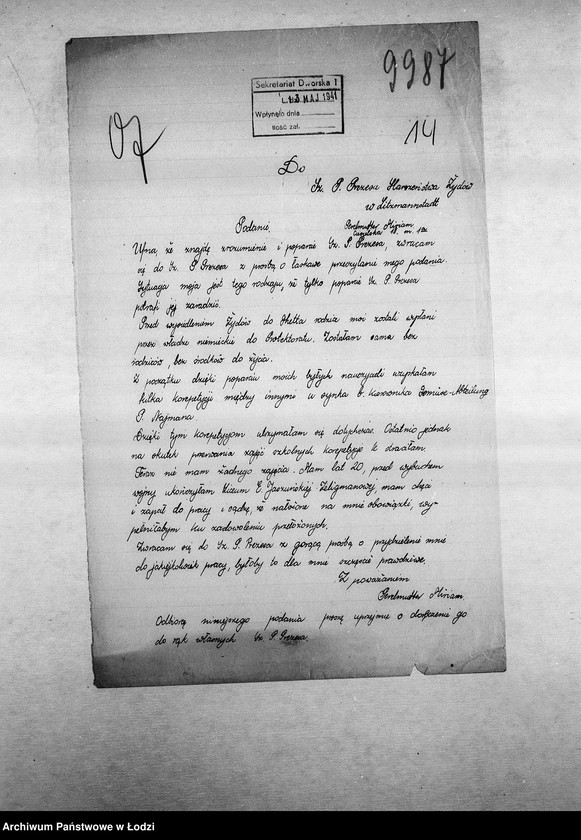 9987
Sekretariat Dworska 1
13 MAJ 1941
Wpłynęło dnia
Ilość zał.
14
Do
Sz. P. Prezesa Starszeństwa Żydów
w Litzmannstadt
Perelmutter Miriam
m. 12a
Podanie.
Ufna, że znajdę zrozumienie i poparcie Sz. P. Prezesa, zwracam
się do Sz. P. Prezesa z prośbą o łaskawe przeczytanie mego podania.
Sytuacja moja jest tego rodzaju, że tylko poparcie Sz. P. Prezesa
potrafi jej zaradzić.
Przed wysiedleniem Żydów do Ghetta rodzice moi zostali wysłani
przez władze niemieckie do Protektoratu. Zostałam sama bez
rodziców, bez środków do życia.
Z początku dzięki poparciu moich byłych nauczycieli uzyskałam
kilka korepetycji między innymi u synka b. kierownika Gemüse-Abteilung
P. Najmana
Dzięki tym korepetycjom utrzymałam się dotychczas. Ostatnio jednak
na skutek przerwania zajęć szkolnych korepetycje te straciłam.
Teraz nie mam żadnego zajęcia. Mam lat 20, przed wybuchem
wojny ukończyłam liceum E. Jaszuńskiej Zeligmanowej, mam chęć
i zapał do pracy i sądzę, że nałożone na mnie obowiązki, wy-
pełniłabym ku zadowoleniu przełożonych.
Zwracam się do Sz. P. Prezesa z gorącą prośbą o przydzielenie mnie
do jakiejkolwiek pracy, byłoby to dla mnie szczęście prawdziwe.
Z poważaniem
Perelmutter Miriam.
Odbiorcę niniejszego podania proszę uprzejmie o doręczenie go
do rąk własnych Sz. P. Prezesa.
Archiwum Państwowe w Łodzi